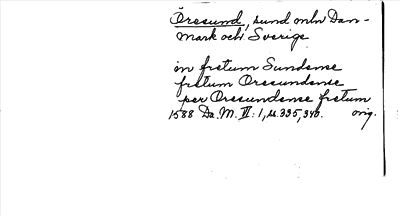 Öresund, sund mln Dan-
mark och Sverige
in fretum Sundense
fretum Oresundense
per Oresundense fretum
1588 Da. M. VI: 1, s. 335, 340. orig.